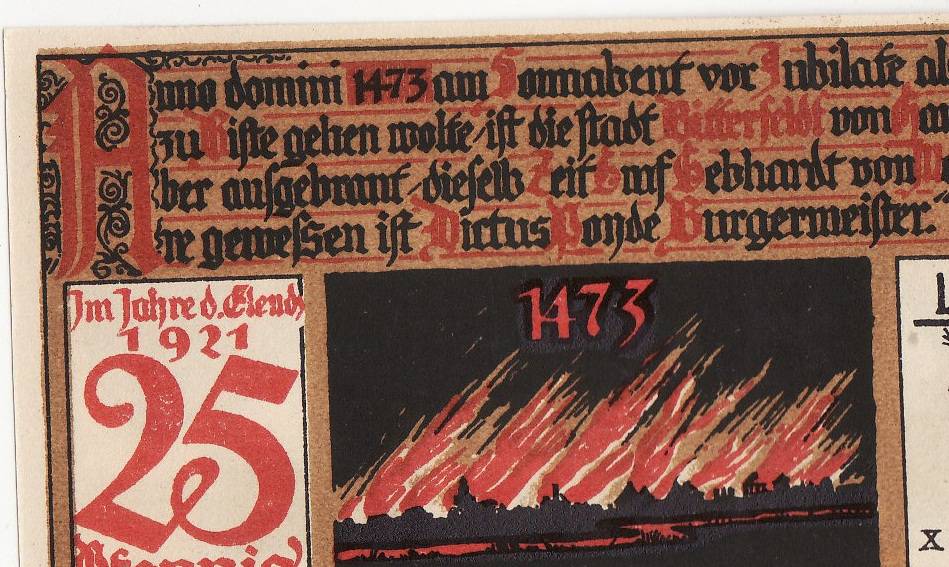 Anno domini 1473 am Sonnabent vor Jubilate al
zu Biste gehen wolte / ist die stadt Bitterfeldt von Ha
ber ausgebrant / dieselb Zeit Emss Gebhardt von
re gewessen ist Dictus Ponde Burgermeister.
Im Jahre d. Elends
1921
25
Pfennig
1473
x